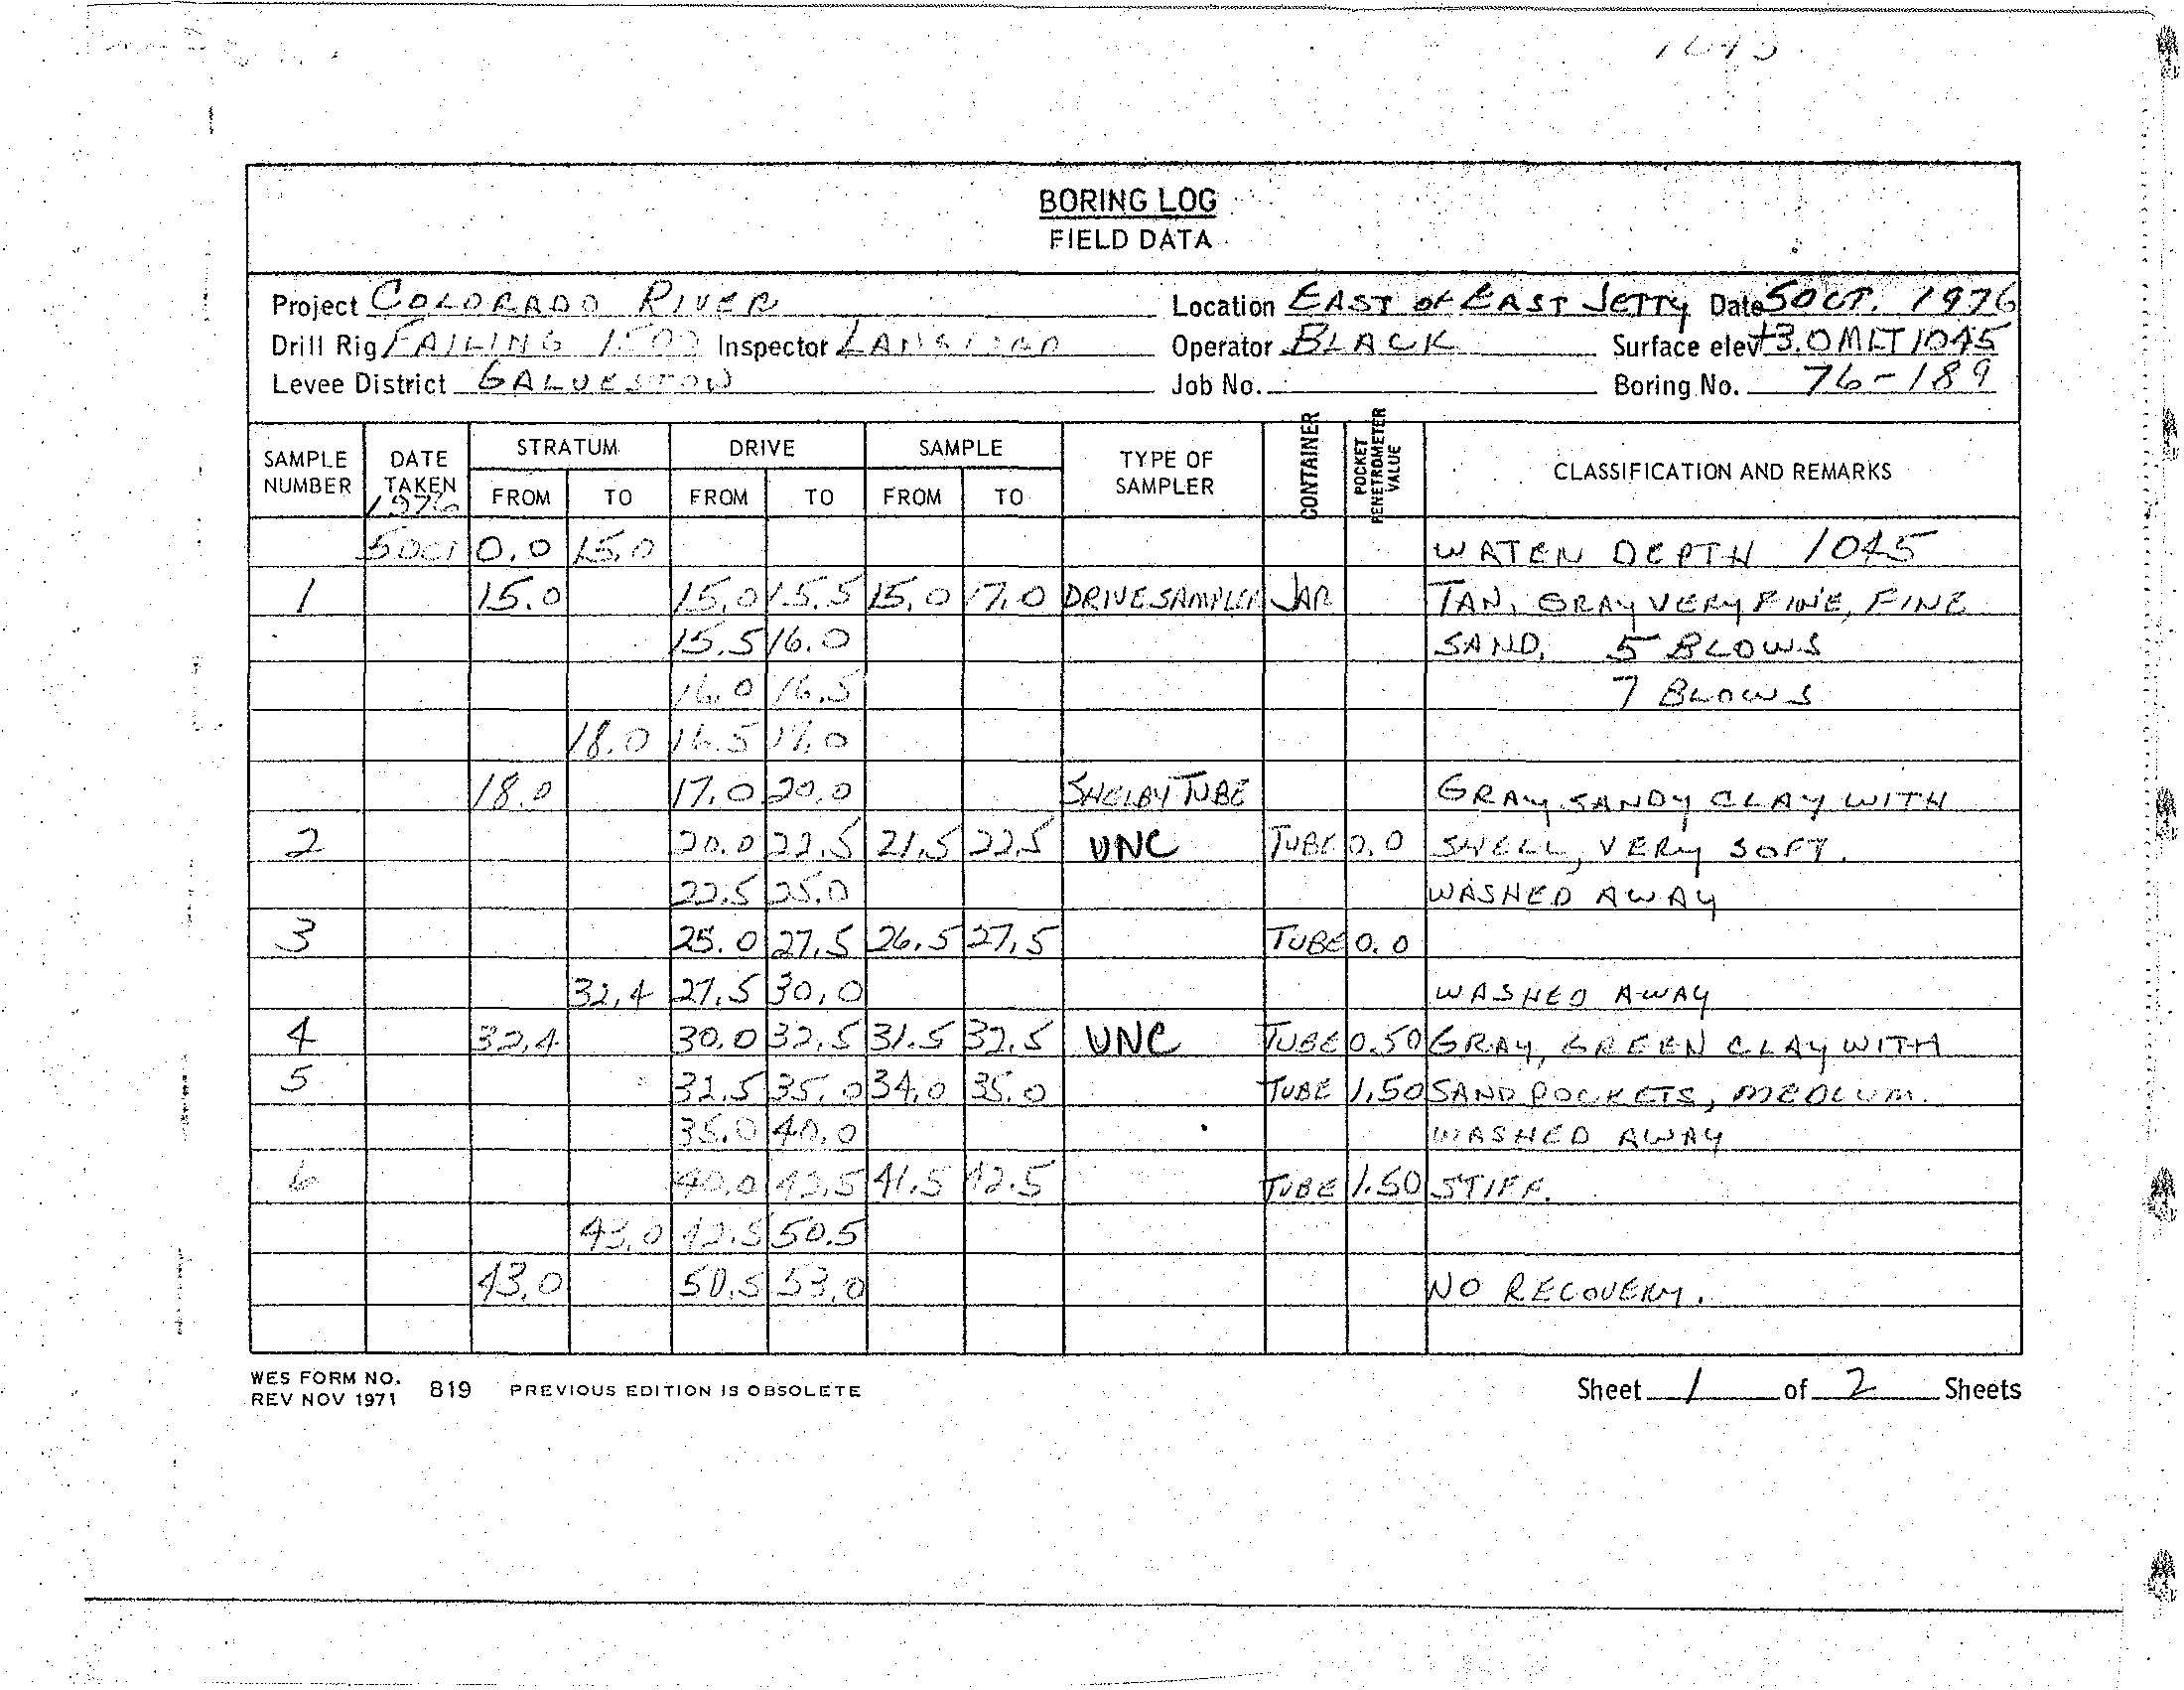 1045
BORING LOG
FIELD DATA
Project COLORADO RIVER Location EAST OF EAST JETTY Date 5 OCT. 1976
Drill Rig FAILING 1500 Inspector LANGFORD Operator BLACK Surface elev +3.0 MLT 1045
Levee District GALVESTON Job No. Boring No. 76-189
SAMPLE NUMBER DATE TAKEN 1976 STRATUM FROM TO DRIVE FROM TO SAMPLE FROM TO TYPE OF SAMPLER CONTAINER POCKET PENETROMETER VALUE CLASSIFICATION AND REMARKS
5 OCT 0.0 15.0 WATER DEPTH 1045
1 15.0 15.0 15.5 15.0 17.0 DRIVE SAMPLER JAR TAN, GRAY VERY FINE, FINE
15.5 16.0 SAND. 5 BLOWS
16.0 16.5 7 BLOWS
18.0 16.5 17.0
18.0 17.0 20.0 SHELBY TUBE GRAY SANDY CLAY WITH
2 20.0 22.5 21.5 22.5 UNC TUBE 0.0 SHELL, VERY SOFT.
22.5 25.0 WASHED AWAY
3 25.0 27.5 26.5 27.5 TUBE 0.0
32.4 27.5 30.0 WASHED AWAY
4 32.4 30.0 32.5 31.5 32.5 UNC TUBE 0.50 GRAY, GREEN CLAY WITH
5 32.5 35.0 34.0 35.0 TUBE 1.50 SAND POCKETS, MEDIUM.
35.0 40.0 WASHED AWAY
6 40.0 42.5 41.5 42.5 TUBE 1.50 STIFF.
43.0 42.5 50.5
43.0 50.5 53.0 NO RECOVERY.
WES FORM NO. 819 PREVIOUS EDITION IS OBSOLETE Sheet 1 of 2 Sheets
REV NOV 1971